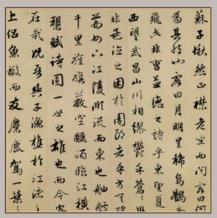 蘇子愀然正襟危坐而問客
為其然也客曰月明星稀烏鵲
飛此非曹孟德之詩乎
望武昌山川相繆鬱乎蒼蒼此
非孟德之困於周郎者乎方其破
荊州下江陵順流而東也舳艫
千里旌旗蔽空釃酒臨江橫
槊賦詩固一世之雄也而今安
在哉況吾與子漁樵於江渚之
上侶魚蝦而友麋鹿駕一葉